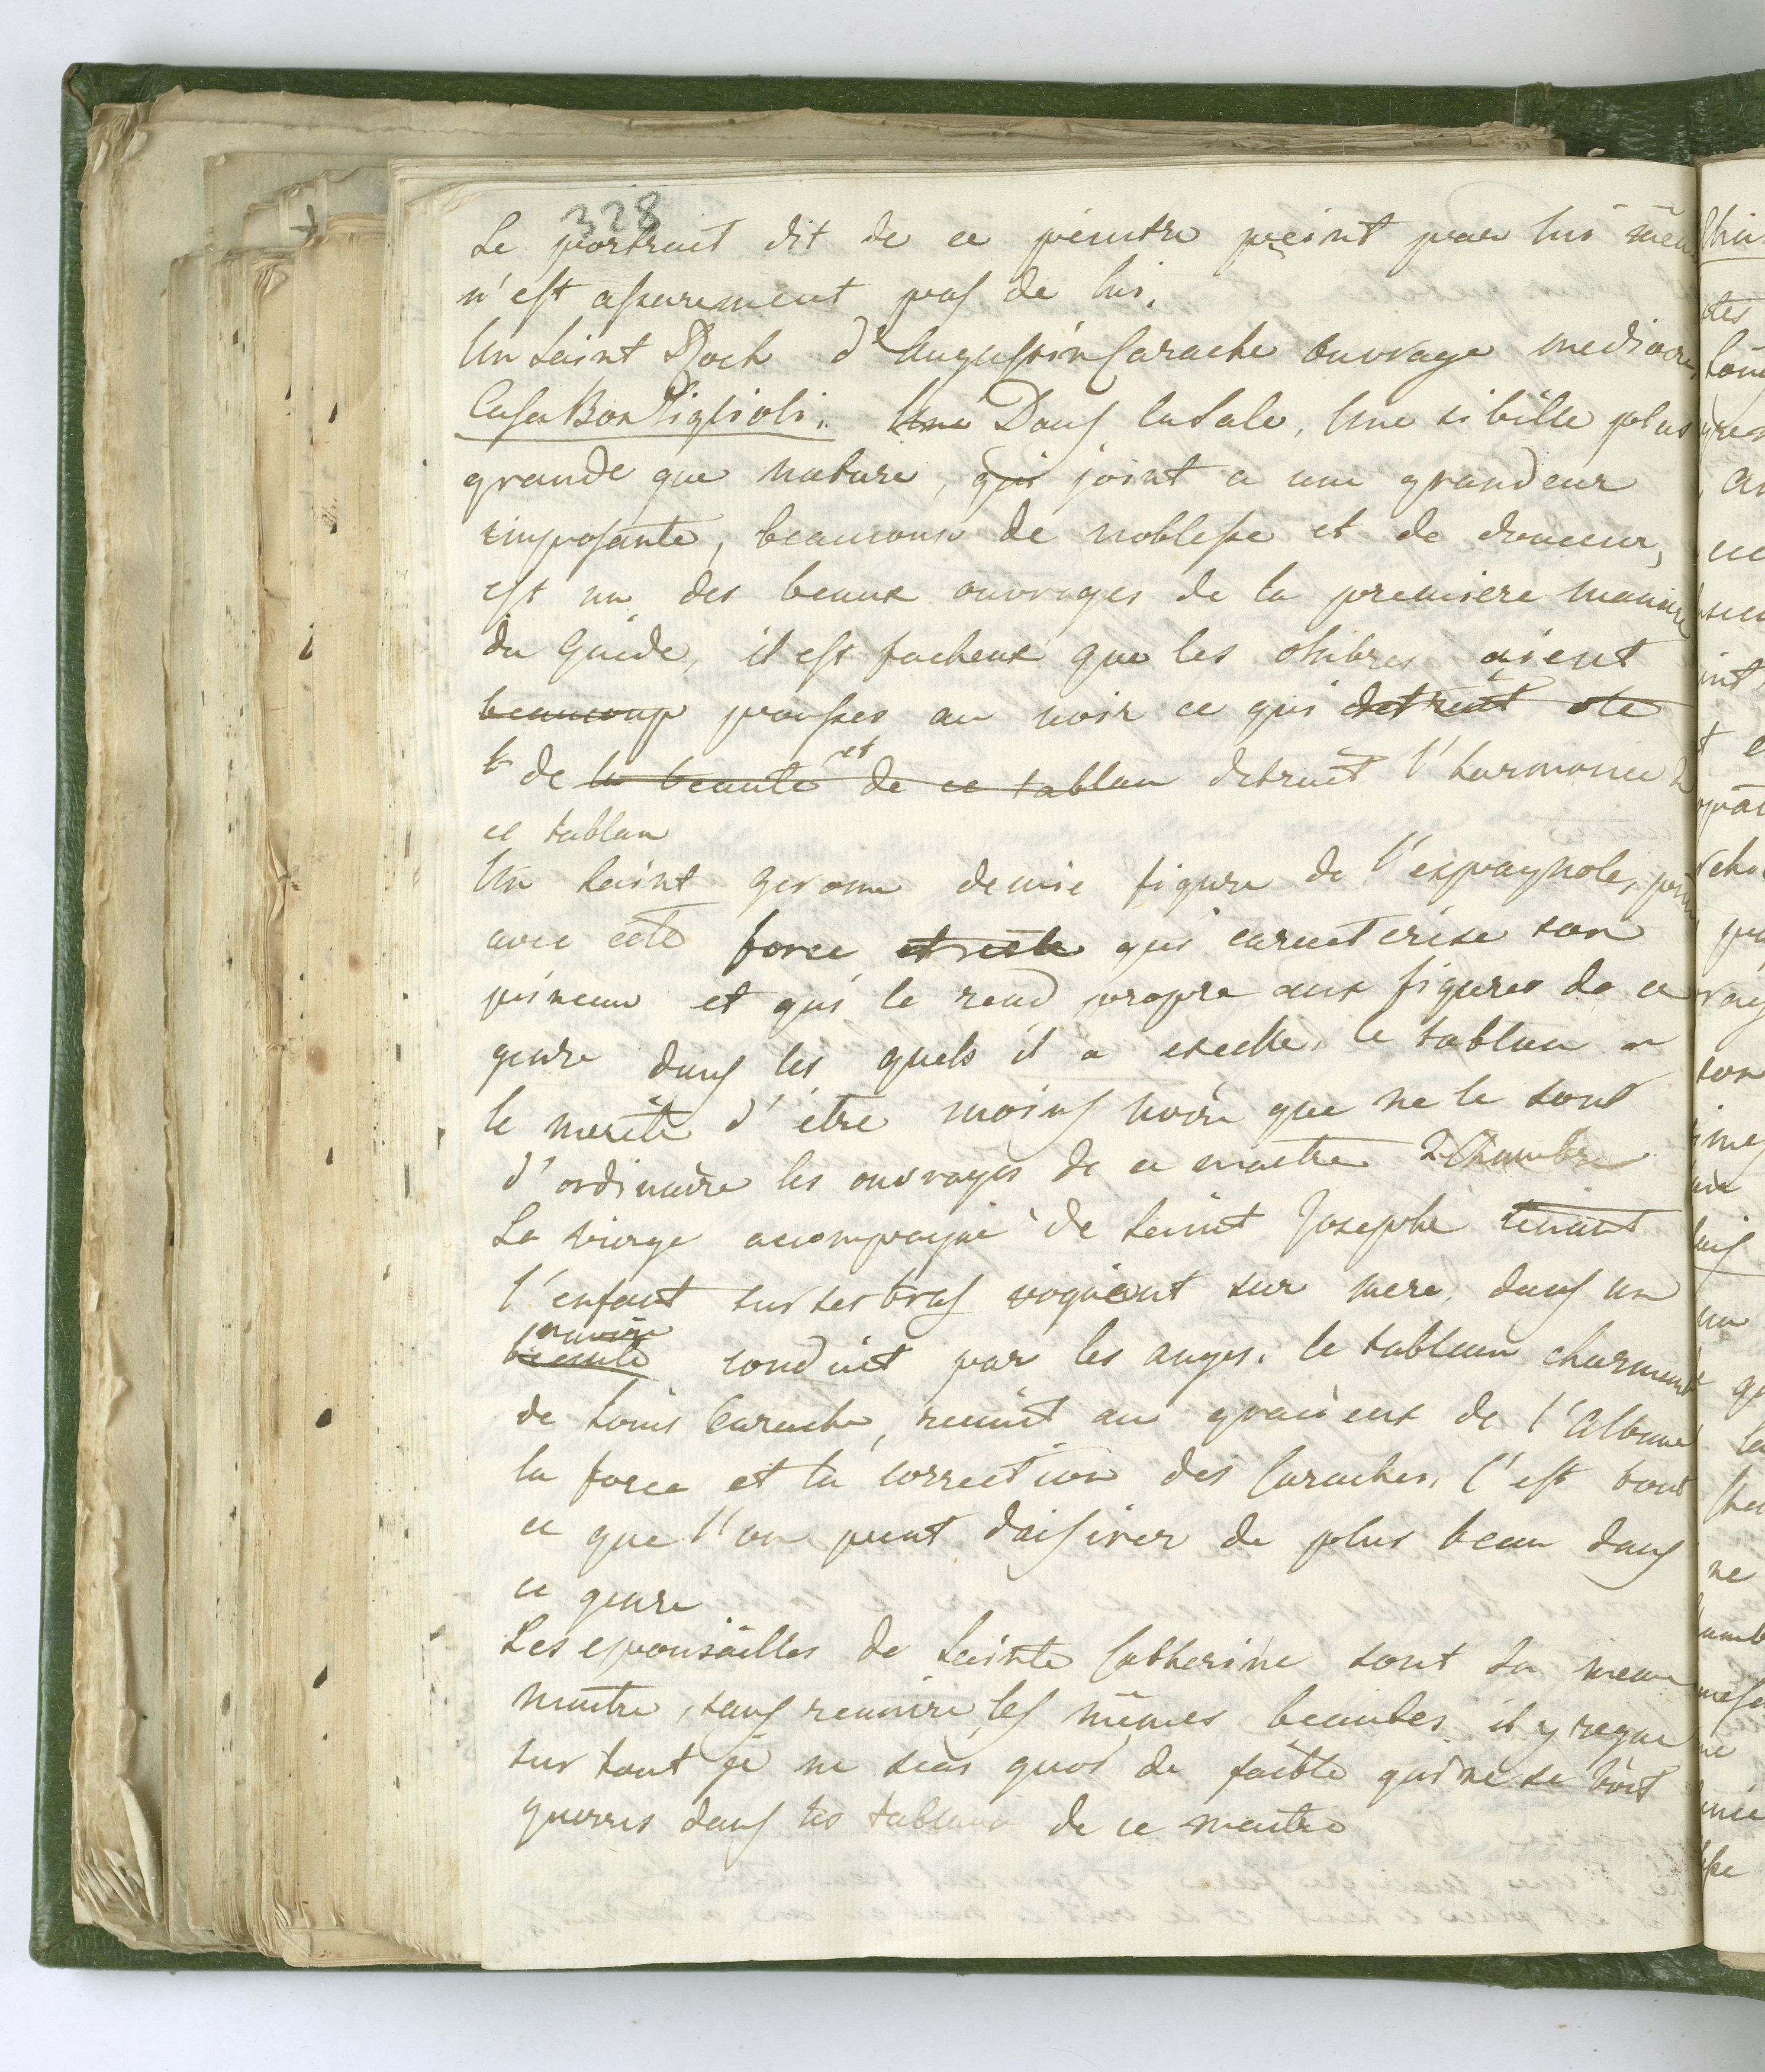 328
Le portrait dit de ce peintre peint par lui mem
n'est assurement pas de lui.
Un saint Roch d'Augustin Carache ouvrage mediocre,
Casa Bonfiglioli. Une Dans la sale, Une sibille plus
grande que nature, qui joint a une grandeur
imposante, beaucoup de noblesse et de douceur,
est un des beaux ouvrages de la premiere maniere
du Guide, il est facheux que les ombres aient
beaucoup poussés au noir ce qui detruit ote
de la beauté et de ce tablau detruit l'harmonie de
ce tablau
Un saint gerome demie figure de l'espagnole, pein
avec cete force et qui caracterise son
pinceau et qui le rend propre aux figures de ce
genre dans les quels il a exellé, ce tablau a
le merite d'être moins noir que ne le sont
d'ordinaire les ouvrages de ce maitre 2 Chambre
La vierge acompagné de saint Josephe tenant
l'enfant sur ses bras voguant sur mere, dans un
navire
conduit par les anges. ce tableau charmant
de Louis Carache, reunit au gracieux de l'Albane
la force et la correction des Caraches, c'est tout
ce que l'on peut daisirer de plus beau dans
ce genre
Les epousailles de Sainte Catherine sont du meme
maitre, sans reunire les mêmes beautés il y regne
sur tout je ne scais quoi de faible qui ne se voit
guerres dans les tablaux de ce maitre